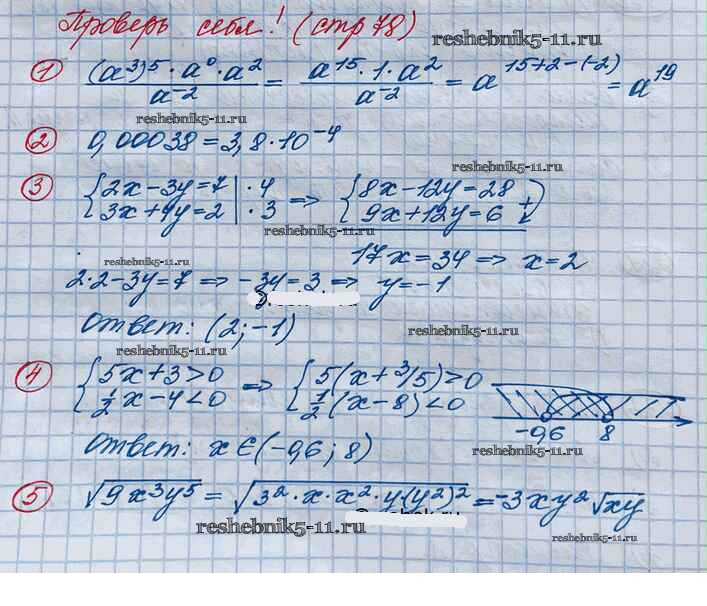 Проверь себя! (стр 78)
reshebnik5-11.ru
① (a³)⁵ · a⁰ · a² / a⁻² = a¹⁵ · 1 · a² / a⁻² = a^(15+2-(-2)) = a¹⁹
reshebnik5-11.ru
② 0,00038 = 3,8 · 10⁻⁴
reshebnik5-11.ru
③ { 2x - 3y = 7 | · 4 => { 8x - 12y = 28
3x + 4y = 2 | · 3 9x + 12y = 6 +
reshebnik5-11.ru
reshebnik5-11.ru
17x = 34 => x = 2
2 · 2 - 3y = 7 => -3y = 3 => y = -1
Ответ: (2; -1)
reshebnik5-11.ru
reshebnik5-11.ru
④ { 5x + 3 > 0 => { 5(x + 3/5) > 0
½x - 4 < 0 ½(x - 8) < 0
-0,6 8
Ответ: x ∈ (-0,6; 8)
reshebnik5-11.ru
⑤ √9x³y⁵ = √3² · x · x² · y(y²)² = -3xy² √xy
reshebnik5-11.ru
reshebnik5-11.ru